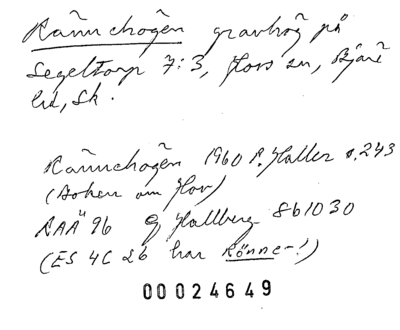 Rännehögen gravhög på
Segeltorp 7:3, Hovs sn, Bjäre
hd, Sk.
Rännehögen 1960 P. Haller s. 243
(Boken om Hov)
RAÄ 96 G Hallberg 861030
(ES 4C 26 har Rönne-!)
00024649